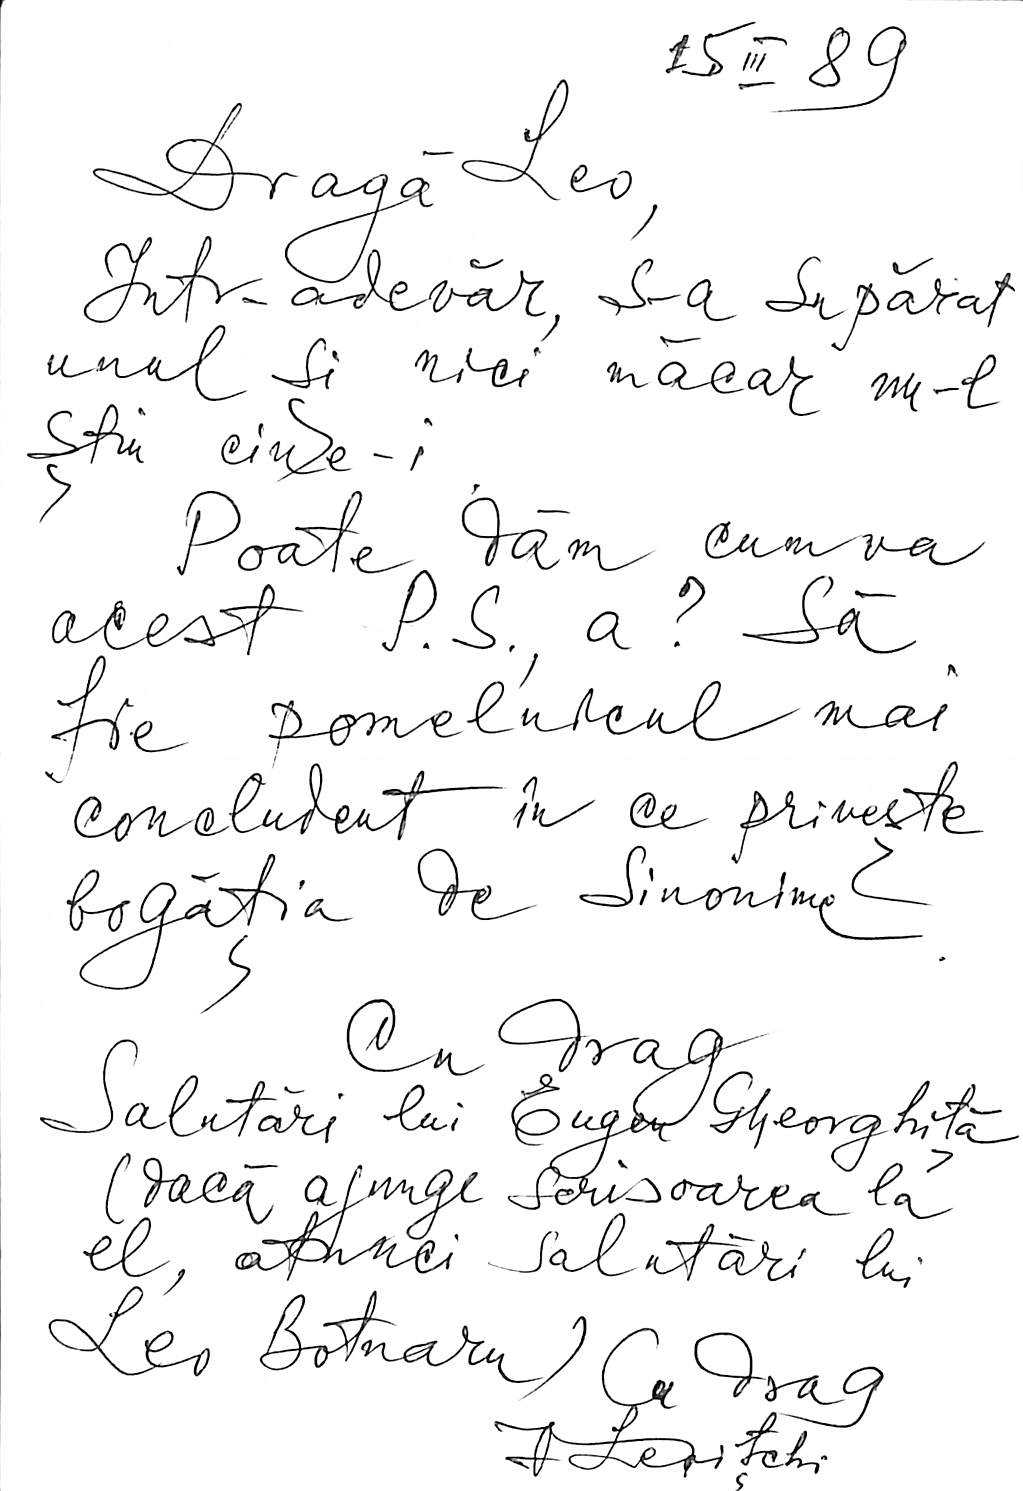 15 III 89
Dragă Leo,
Intr-adevăr, s-a supărat
unul si nici măcar nu-l
știu cine-i
Poate dăm cumva
acest P.S., a? Să
fie pomelnicul mai
concludent în ce privește
bogăția de sinonime.
Cu drag
Salutări lui Eugen Gheorghiță
(dacă ajunge scrisoarea la
el, atunci salutări lui
Leo Botnaru) Cu drag